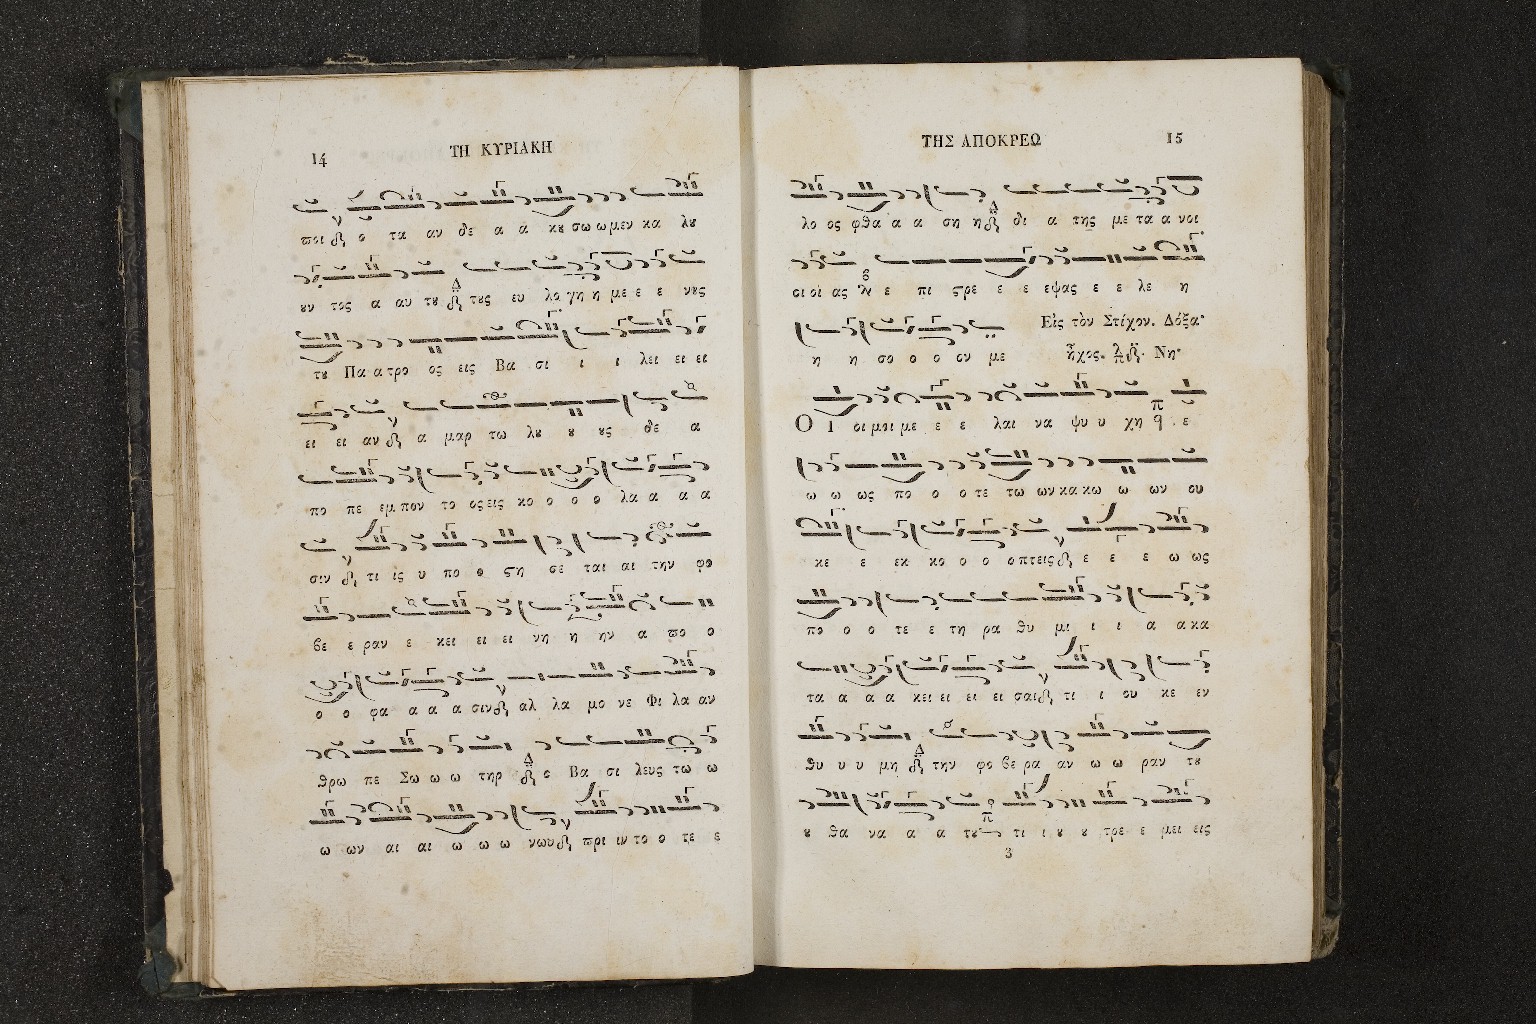 14 ΤΗ ΚΥΡΙΑΚΗ
ποι ο τα αν δε α α κȣ σω ω μεν κα λȣ
ȣν τος α αυ τȣ τȣς ευ λο γη η με ε ε νȣς
τȣ Πα α τρο ος εις Βα σι ι ι λει ει ει
ει ει αν α μαρ τω λȣ ȣ ȣς δε α
πο πε εμ πον το ος εις κο ο ο ο λα α α α
σιν τι ις υ πο ο ϛη σε ται αι την φο
βε ε ραν ε κει ει ει νη η ην α πο ο
ο ο φα α α α σιν αλ λα μο νε Φι λα αν
θρω πε Σω ω ω τηρ ο Βα σι λευς τω ω
ω ων αι αι ω ω ω νων πρι ιν το ο τε ε
ΤΗΣ ΑΠΟΚΡΕΩ 15
λο ος φθα α α ση η δι α της με τα α νοι
οι οὶ ας ε πι ϛρε ε ε εψας ε ε λε η
η η σο ο ο ον με
Εἰς τὸν Στίχον. Δόξα·
ἦχος. Νη·
ΟΙ οι μοι με ε ε λαι να ψυ υ χη ε
ω ω ως πο ο ο τε τω ων κα κω ω ων ου
κε ε εκ κο ο ο οπτεις ε ε ε ω ως
πο ο ο τε ε τη ρα θυ μι ι ι α α κα
τα α α α κει ει ει ει σαι τι ι ου κε εν
θυ υ υ μη την φο βε ρα αν ω ω ραν τȣ
ȣ θα να α α τȣ τι ι ȣ ȣ τρε ε μει εις
3